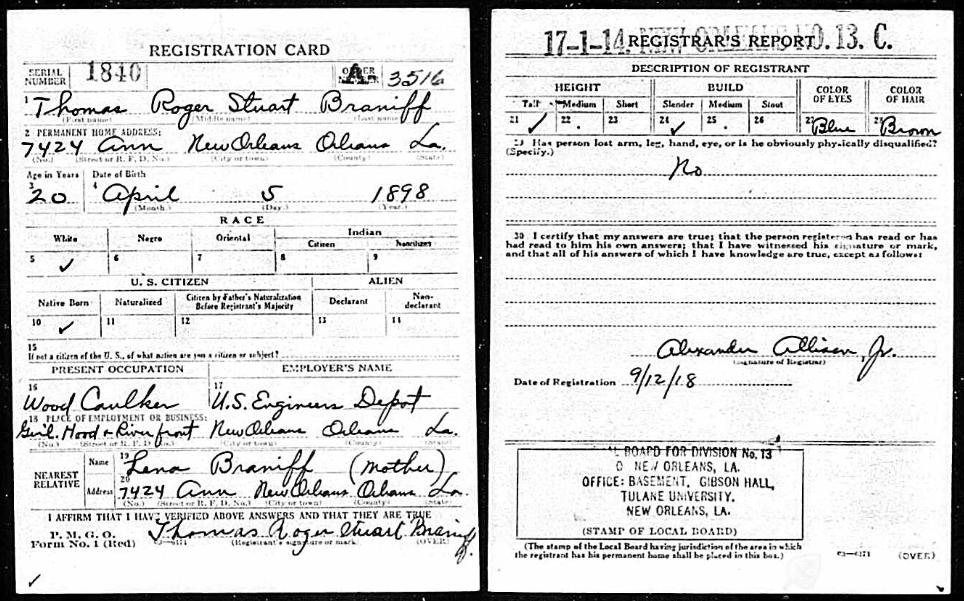 REGISTRATION CARD
SERIAL NUMBER 1840 ORDER NUMBER 3516
1 Thomas Roger Stuart Braniff
(First name) (Middle name) (Last name)
2 PERMANENT HOME ADDRESS:
7424 Ann New Orleans Orleans La.
(No.) (Street or R. F. D. No.) (City or town) (County) (State)
Age in Years Date of Birth
3 20 4 April 5 1898
(Month.) (Day.) (Year.)
RACE
White Negro Oriental Indian
Citizen Noncitizen
5 ✓ 6 7 8 9
U. S. CITIZEN ALIEN
Native Born Naturalized Citizen by Father's Naturalization Before Registrant's Majority Declarant Non-declarant
10 ✓ 11 12 13 14
15
If not a citizen of the U. S., of what nation are you a citizen or subject?
PRESENT OCCUPATION EMPLOYER'S NAME
16 Wood Caulker 17 U.S. Engineers Depot
18 PLACE OF EMPLOYMENT OR BUSINESS:
Hood & River front New Orleans Orleans La.
(No.) (Street or R. F. D. No.) (City or town) (County) (State)
NEAREST RELATIVE
Name 19 Lena Braniff (mother)
Address 20 7424 Ann New Orleans Orleans La.
(No.) (Street or R. F. D. No.) (City or town) (County) (State)
I AFFIRM THAT I HAVE VERIFIED ABOVE ANSWERS AND THAT THEY ARE TRUE
P. M. G. O.
Form No. 1 (Red) Thomas Roger Stuart Braniff
(Registrant's signature or mark) (OVER)
17-1-14 NEW ORLEANS NO. 13. C.
REGISTRAR'S REPORT
DESCRIPTION OF REGISTRANT
HEIGHT BUILD COLOR OF EYES COLOR OF HAIR
Tall Medium Short Slender Medium Stout
21 ✓ 22 23 24 ✓ 25 26 27 Blue 28 Brown
29 Has person lost arm, leg, hand, eye, or is he obviously physically disqualified?
(Specify.)
No
30 I certify that my answers are true; that the person registered has read or has
had read to him his own answers; that I have witnessed his signature or mark,
and that all of his answers of which I have knowledge are true, except as follows:
Alexander Allison, Jr.
(Signature of Registrar)
Date of Registration 9/12/18
BOARD FOR DIVISION No. 13
NEW ORLEANS, LA.
OFFICE: BASEMENT, GIBSON HALL,
TULANE UNIVERSITY.
NEW ORLEANS, LA.
(STAMP OF LOCAL BOARD)
(The stamp of the Local Board having jurisdiction of the area in which
the registrant has his permanent home shall be placed in this box.)
(OVER)